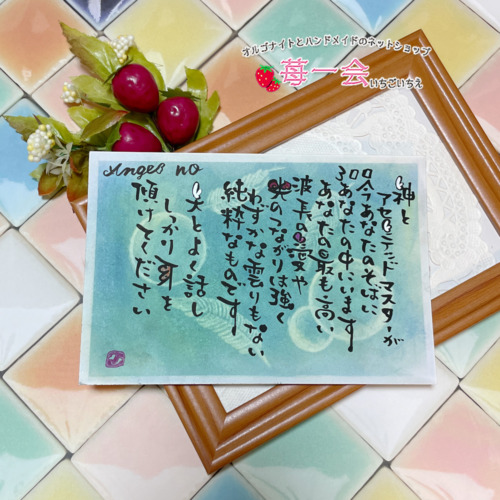 オルゴナイトとハンドメイドのネットショップ
苺一会
いちごいちえ
Anges no
神と
アセンテッドマスターが
今あなたのそばに
あなたの中にいます
あなたの最も高い
波長の愛や
光のつながりは強く
わずかな雲りもない
純粋なものです
天とよく話し
しっかり耳を
傾けてください